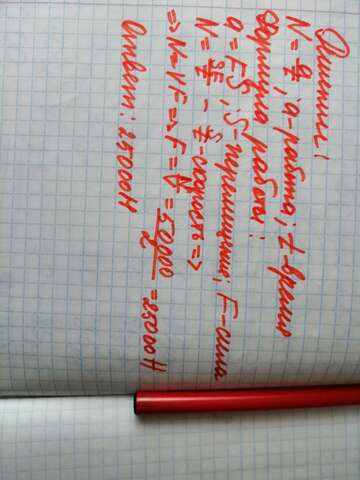 N = a/t ; a-работа; t-время
Формула работы:
a = FS ; S-перемещение; F-сила
N = SF/t - S/t-скорость =>
=> N=VF => F = N/V = 50000/2 = 25000 Н
Ответ: 25000Н